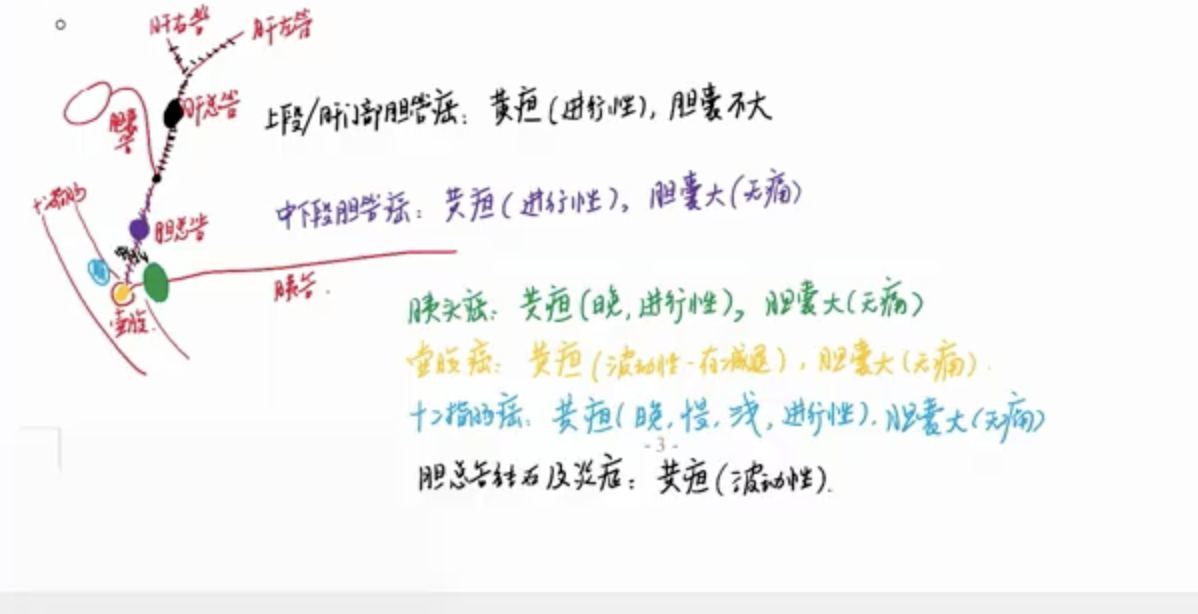 肝右管
肝左管
肝总管
胆囊管
上段/肝门部胆管癌：黄疸(进行性)，胆囊不大
十二指肠
胆总管
中下段胆管癌：黄疸(进行性)，胆囊大(无痛)
胰管.
壶腹.
胰头癌：黄疸(晚,进行性)，胆囊大(无痛)
壶腹癌：黄疸(波动性-有减退)，胆囊大(无痛).
十二指肠癌：黄疸(晚,慢,浅,进行性).胆囊大(无痛)
- 3 -
胆总管结石及炎症：黄疸(波动性).